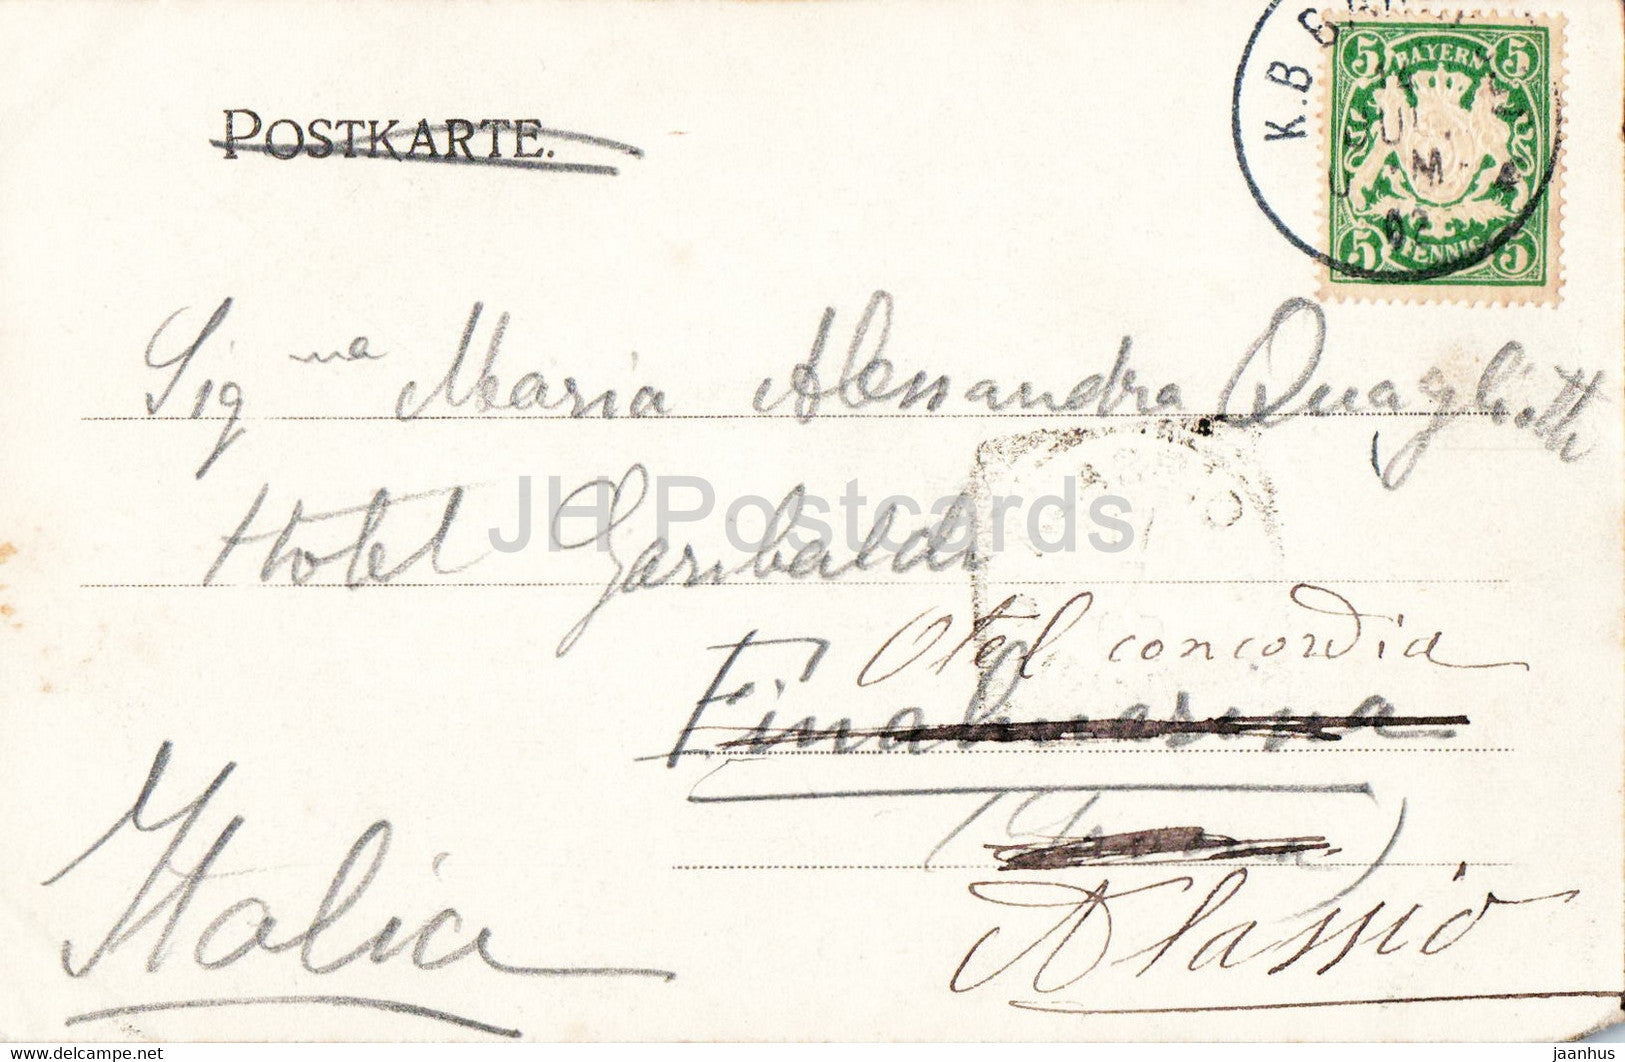 POSTKARTE.
K.B.
5 BAYERN 5
5 PFENNIG 5
02
Sig na Maria Alessandra Quagliotti
Hotel Garibaldi
Otel concordia
Finalmarina
Alassio
Italia
JH Postcards
delcampe.net
jaanhus